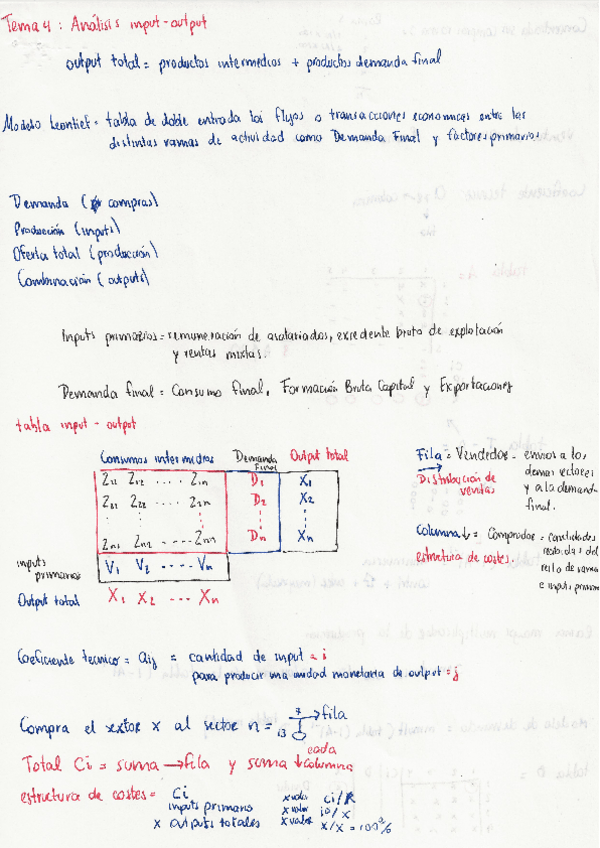 Tema 4 : Análisis input-output
output total = productos intermedios + productos demanda final
Modelo Leontief = tabla de doble entrada los flujos o transacciones economicas entre las
distintas ramas de actividad como Demanda Final y factores primarios
Demanda ( compras)
Producción (inputs)
Oferta total (producción)
Combinación (outputs)
Inputs primarios = remuneración de asalariados, excedente bruto de explotación
y rentas mixtas.
Demanda final = Consumo final, Formación Bruta Capital y Exportaciones
tabla input - output
Consumos intermedios Demanda Final Output total
Z11 Z12 .... Z1n D1 X1
Z21 Z22 .... Z2n D2 X2
Zn1 Zn2 ----- Znn Dn Xn
inputs primarios V1 V2 ---- Vn
Output total X1 X2 --- Xn
Fila = Vendedor - envios a los
Distribución de ventas
demas sectores
y a la demanda
final.
Columna ↓ = Comprador = cantidades
estructura de costes.
resto de ramas
e inputs primarios
Coeficiente tecnico = aij = cantidad de input = i
para producir una unidad monetaria de output = j
Compra el sector x al sector n = 7 → fila
13
cada
Total Ci = suma → fila y suma ↓ columna
estructura de costes = Ci x valor ci/x
inputs primario x valor ip/x
x outputs totales x valor x/x = 100%